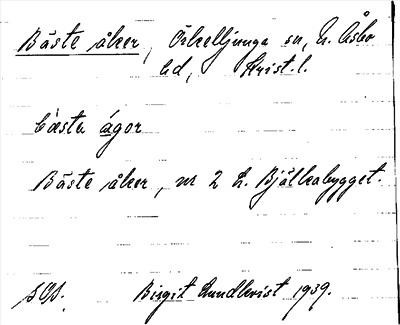 Bäste åker, Örkelljunga sn, N. Åsbo
hd, Krist. l.
bästa ågor
Bäste åker, nr 2 L. Bjälkabygget.
Birgit Lundkvist 1939.